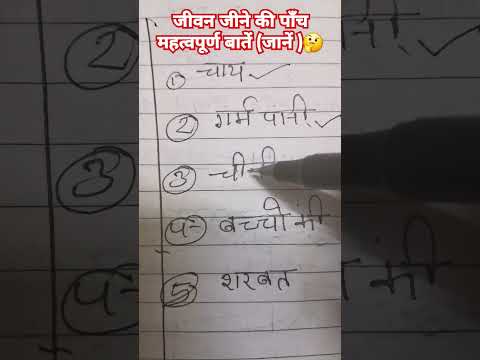 जीवन जीने की पाँच
महत्वपूर्ण बातें (जानें )🤔
1) चाय ✓
2 गर्म पानी ✓
3 चीनी
4- बच्चो
5 शरबत